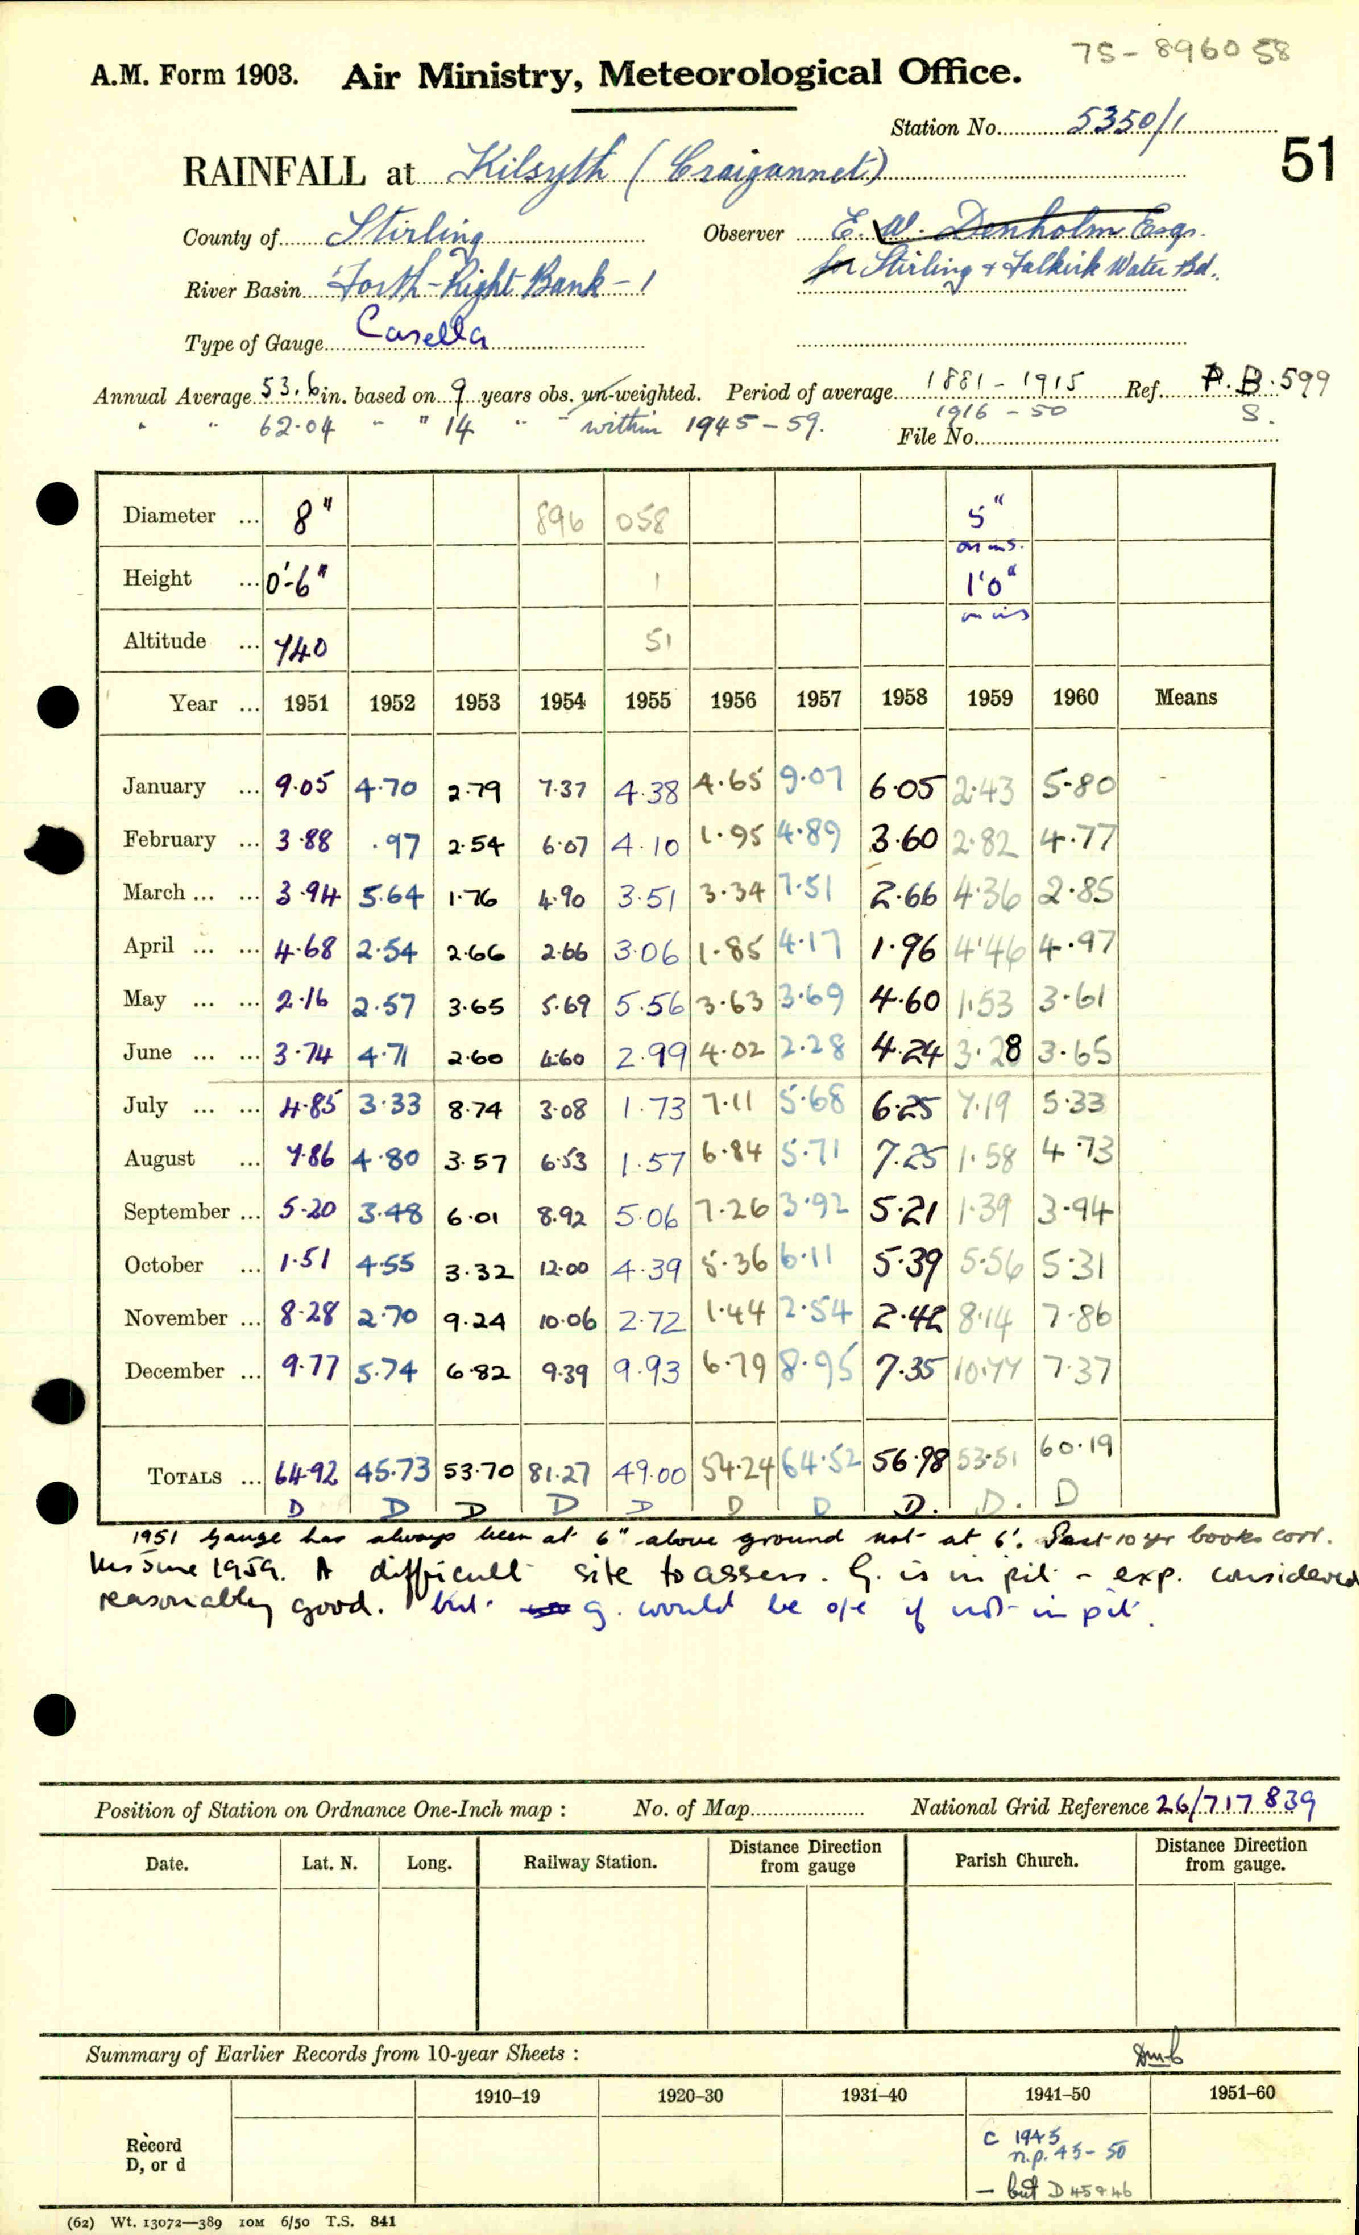 75-896058
A.M. Form 1903. Air Ministry, Meteorological Office.
Station No. 5350/1
51
RAINFALL at Kilsyth (Craigannet)
County of Stirling Observer E. W. Denholm Esq.
for Stirling & Falkirk Water Bd.
River Basin Forth - Right Bank - 1
Type of Gauge Casella
Annual Average 53.6 in. based on 9 years obs. un-weighted. Period of average 1881 - 1915 Ref. A. B. 599
" " 62.04 " " 14 " " within 1945-59. 1916 - 50 S.
File No.
Diameter ... 8" 896 058 5"
on ins.
Height ... 0'-6" 1 1'0"
on ins
Altitude ... 740 51
Year ... 1951 1952 1953 1954 1955 1956 1957 1958 1959 1960 Means
January ... 9.05 4.70 2.79 7.37 4.38 4.65 9.07 6.05 2.43 5.80
February ... 3.88 .97 2.54 6.07 4.10 1.95 4.89 3.60 2.82 4.77
March ... ... 3.94 5.64 1.76 4.90 3.51 3.34 7.51 2.66 4.36 2.85
April ... ... 4.68 2.54 2.66 2.66 3.06 1.85 4.17 1.96 4.46 4.97
May ... ... 2.16 2.57 3.65 5.69 5.56 3.63 3.69 4.60 1.53 3.61
June ... ... 3.74 4.71 2.60 4.60 2.99 4.02 2.28 4.24 3.28 3.65
July ... ... 4.85 3.33 8.74 3.08 1.73 7.11 5.68 6.25 7.19 5.33
August ... 7.86 4.80 3.57 6.53 1.57 6.84 5.71 7.25 1.58 4.73
September ... 5.20 3.48 6.01 8.92 5.06 7.26 3.92 5.21 1.39 3.94
October ... 1.51 4.55 3.32 12.00 4.39 5.36 6.11 5.39 5.56 5.31
November ... 8.28 2.70 9.24 10.06 2.72 1.44 2.54 2.42 8.14 7.86
December ... 9.77 5.74 6.82 9.39 9.93 6.79 8.95 7.35 10.77 7.37
TOTALS ... 64.92 45.73 53.70 81.27 49.00 54.24 64.52 56.98 53.51 60.19
D D D D D D D D. D. D
1951 Gauge has always been at 6" above ground not at 6'. Past 10 yr books corr.
Ins June 1959. A difficult site to assess. G. is in pit - exp. considered
reasonably good. but g. would be o/e if not in pit.
Position of Station on Ordnance One-Inch map : No. of Map National Grid Reference 26/717 839
Date. Lat. N. Long. Railway Station. Distance Direction from gauge Parish Church. Distance Direction from gauge.
Summary of Earlier Records from 10-year Sheets :
1910–19 1920–30 1931–40 1941–50 1951–60
Record
D, or d
C 1945
n.p. 45-50
- but D 45 & 46
(62) Wt. 13072—389 10M 6/50 T.S. 841